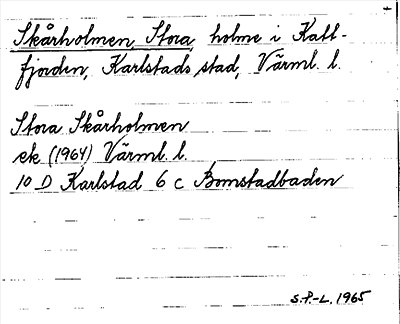 Skårholmen, Stora, holme i Katt-
fjorden, Karlstads stad, Värml. l.
Stora Skårholmen
ek (1964) Värml. l.
10 D Karlstad 6 c Bomstadbaden
S.P.-L. 1965